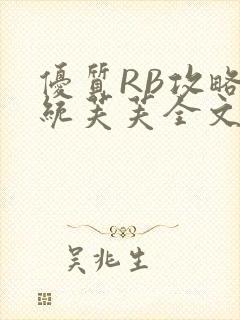 優質RB攻略
統芙芙全文
吴兆生